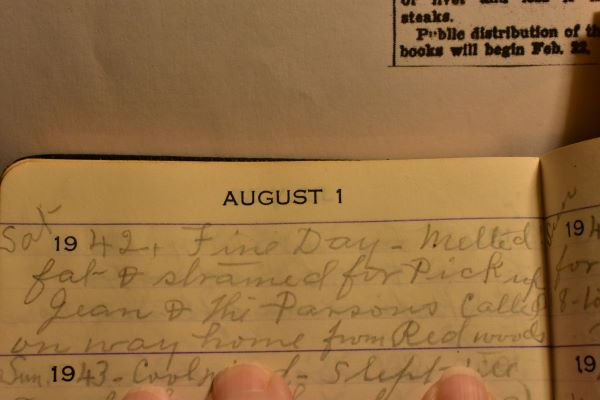 of liver and less
steaks.
Public distribution of th
books will begin Feb. 22,
AUGUST 1
Sat 1942. Fine Day - Melted
fat & strained for Pick up
Jean & the Parsons called
on way home from Redwoods
Sun. 1943 - Cool wind - Slept till
19
for
8-18
19